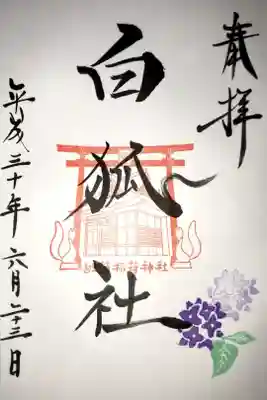 奉拝
白狐社
稲荷神社
平成三十年 六月二十三日